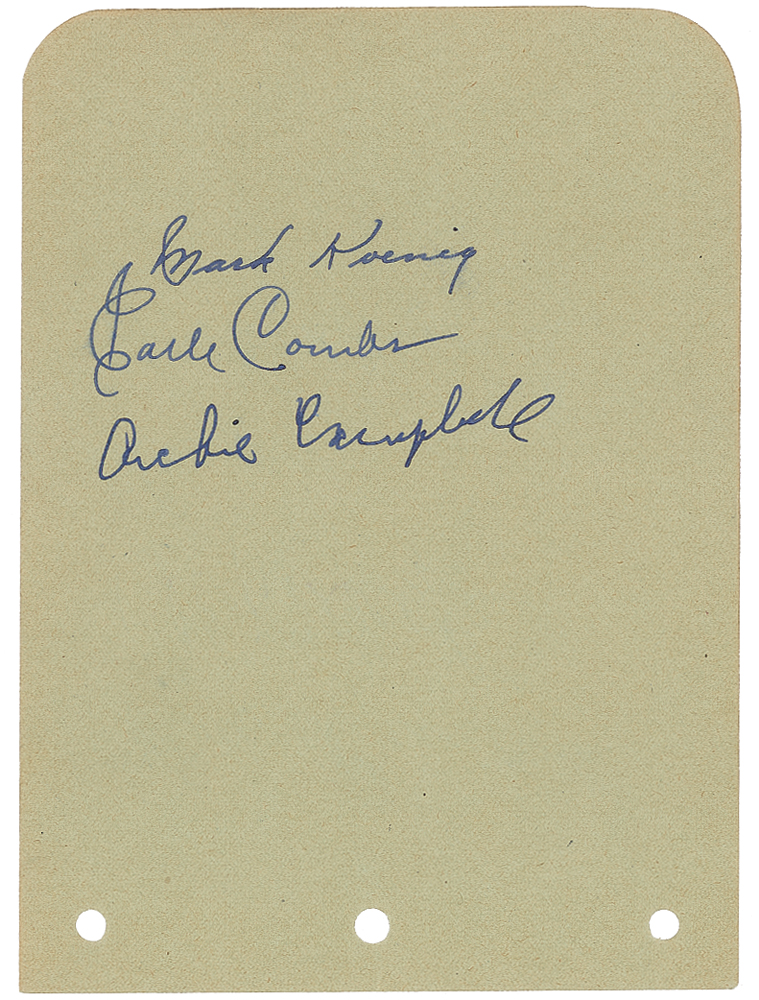 Mark Koenig
Earle Combs
Archie Campbell